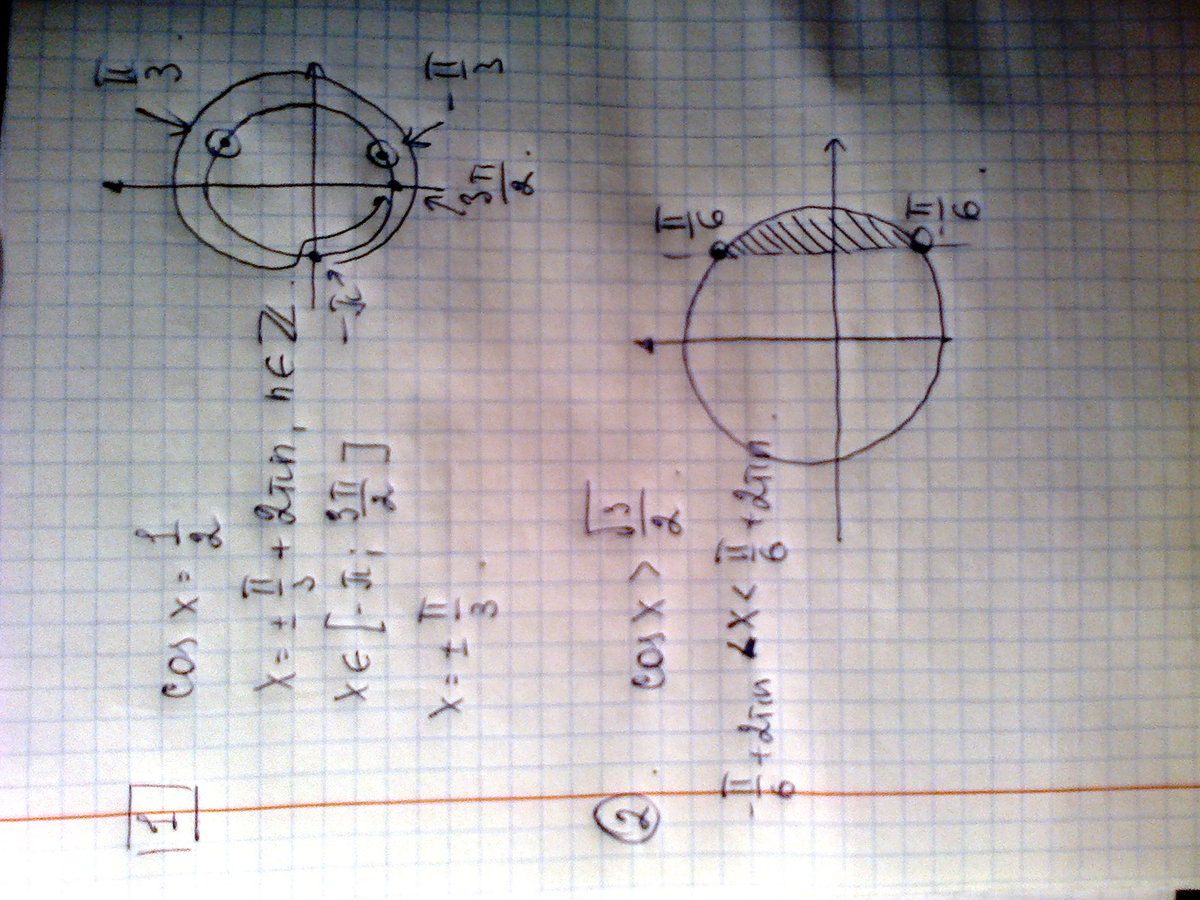 1
cos x = 1/2
x = ± π/3 + 2πn, n ∈ ℤ.
x ∈ [-π; 3π/2]
x = ± π/3.
π/3
-π/3
-π
3π/2.
2
cos x > √3/2.
-π/6 + 2πn < x < π/6 + 2πn.
π/6
-π/6